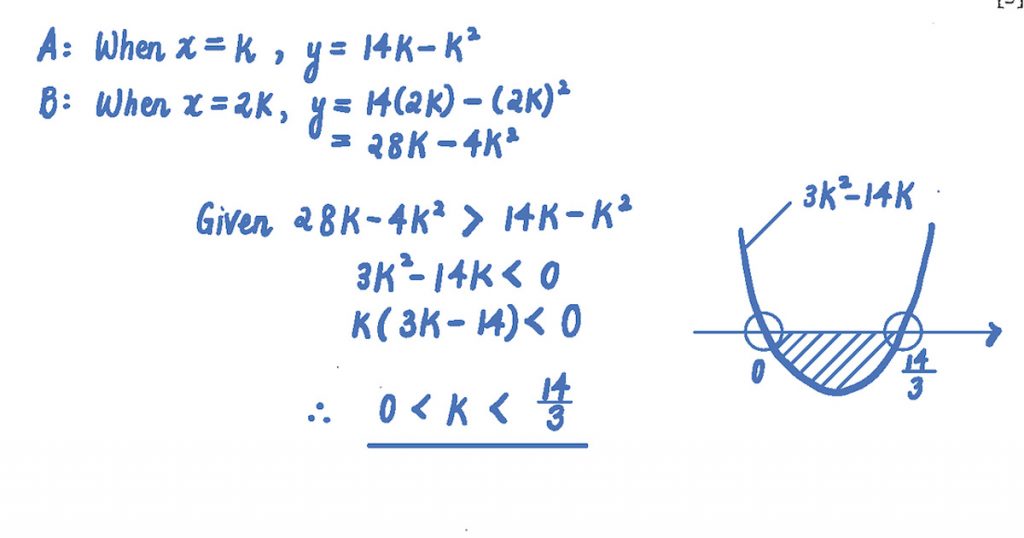 [3]
A: When x = k, y = 14k - k²
B: When x = 2k, y = 14(2k) - (2k)²
= 28k - 4k²
Given 28k - 4k² > 14k - k²
3k² - 14k < 0
k(3k - 14) < 0
∴ 0 < k < 14/3
3k² - 14k
0
14/3